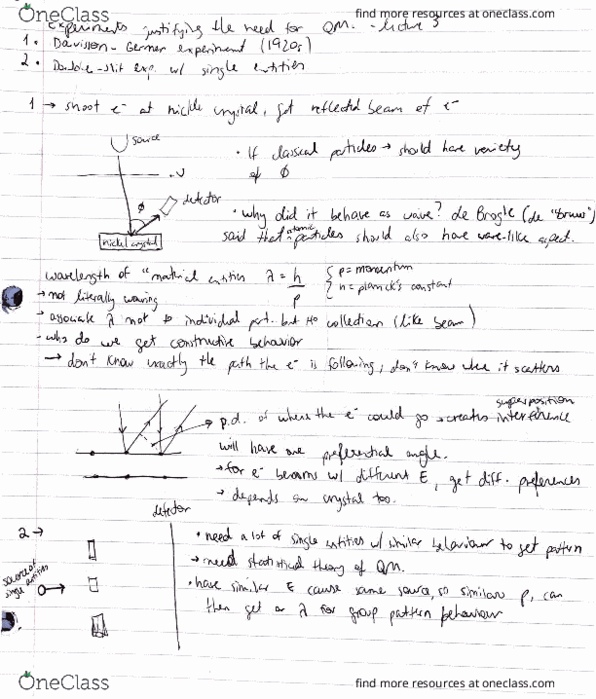 OneClass
find more resources at oneclass.com
experiments justifying the need for QM. - lecture 3
1. Davisson-Germer experiment (1920s)
2. Double-slit exp. w/ single entities
1 → shoot e⁻ at nickle crystal, get reflected beam of e⁻
source
• If classical particles → should have variety
of ϕ
-V
ϕ
detector
nickel crystal
• why did it behave as wave? de Broglie (de "Broui")
said that atomic particles should also have wave-like aspect.
wavelength of "material entities λ = h/p
{ p = momentum
{ h = planck's constant
→ not literally waving
→ associate λ not to individual part. but to collection (like beam)
- why do we get constructive behavior
→ don't know exactly the path the e⁻ is following, don't know where it scatters
superposition
p.d. of where the e⁻ could go → creates interference
will have one preferential angle.
→ for e⁻ beams w/ different E, get diff. preferences
→ depends on crystal too.
detector
2 →
source of single entities
• need a lot of single entities w/ similar behaviour to get pattern
→ need statistical theory of QM.
• have similar E cause same source, so similar p, can
then get a λ for group pattern behaviour
OneClass
find more resources at oneclass.com